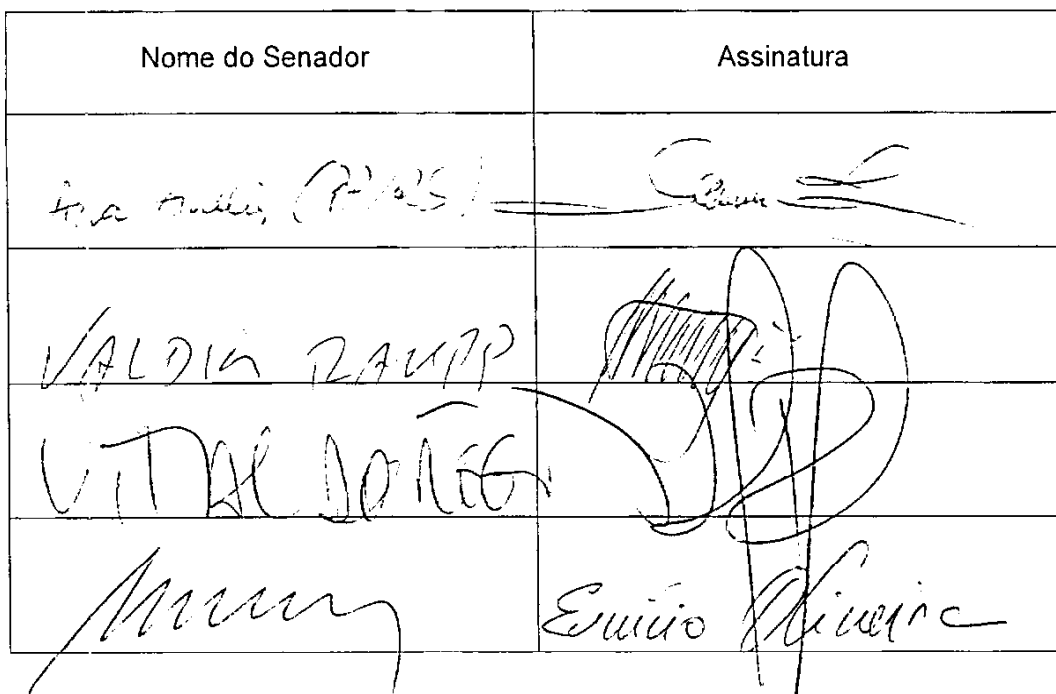 Nome do Senador Assinatura
Ana Amélia (PP/RS)
VALDIR RAUPP
VITAL DO RÊGO
Eunício Oliveira